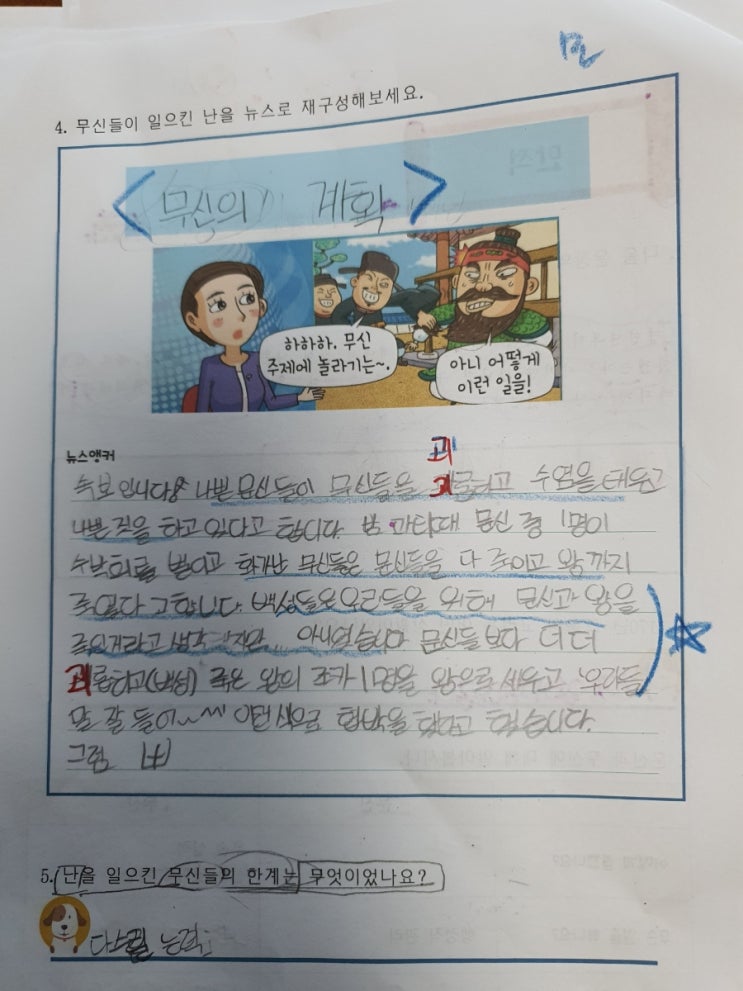 4. 무신들이 일으킨 난을 뉴스로 재구성해보세요.
<무신의 계획>
하하하. 무신
주제에 놀라기는~.
아니 어떻게
이런 일을!
뉴스앵커
괴
속보입니다! 나쁜 문신들이 무신들을 롭히고 수염을 태우고
나쁜 짓을 하고 있다고 합니다. 문신 중 1명이
화가난 무신들은 문신들을 다 죽이고 왕까지
죽였다고합니다. 백성들은 우리들을 위해 문신과 왕을
죽인거라고 생각 아니었습니다 문신들보다 더 더
괴롭히고(백성) 죽은 왕의 조카 1명을 왕으로 세우고 우리들
말 잘 들어~^^ 이런식으로 협박을 했다고 했습니다.
그럼
5. 난을 일으킨 무신들의 한계는 무엇이었나요?
다스릴 능력